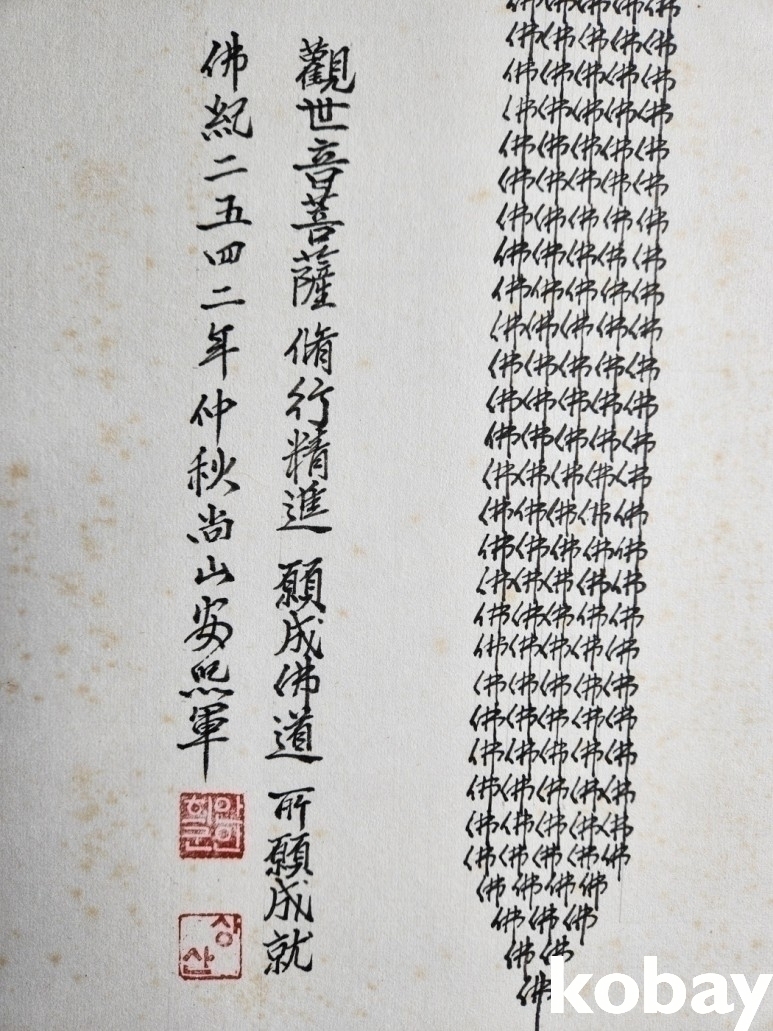 佛佛佛佛佛
佛佛佛佛佛
佛佛佛佛佛
佛佛佛佛佛
佛佛佛佛佛
佛佛佛佛佛
佛佛佛佛佛
佛佛佛佛佛
佛佛佛佛佛
佛佛佛佛佛
佛佛佛佛佛
佛佛佛佛佛
佛佛佛佛佛
佛佛佛佛佛
佛佛佛佛佛
佛佛佛佛佛
佛佛佛佛佛
佛佛佛佛佛
佛佛佛佛佛
佛佛佛佛佛
佛佛佛佛佛
佛佛佛佛佛
佛佛佛佛佛
佛佛佛佛佛
佛佛佛佛佛
佛佛佛佛
佛佛佛
佛佛
佛
觀世音菩薩 脩行精進 願成佛道 所願成就
佛紀二五四二年仲秋尚山安熙軍
희안
군인
상
산
kobay